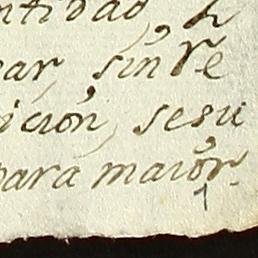 ntidad,
ar, sin re
ición, sesu
para maiór